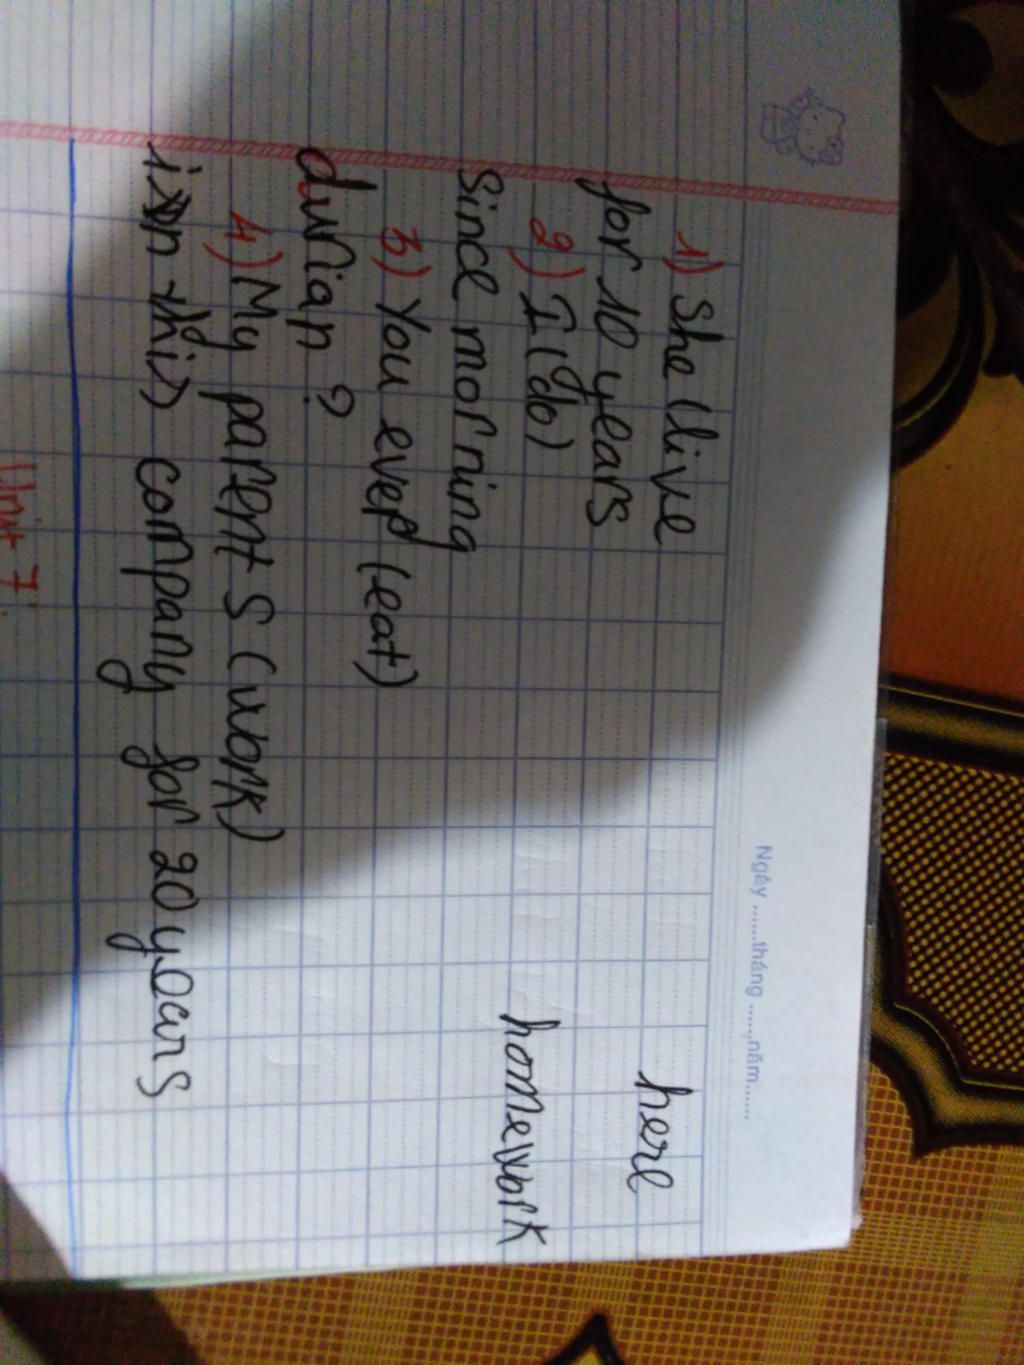 Ngày ......tháng ......năm......
1) She (live here
for 10 years
2) I (do) homework
since morning
3) You ever (eat)
durian ?
4) My parents (work)
in this company for 20 years
Unit 7: